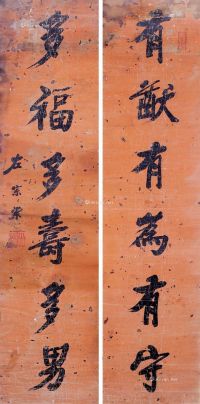 有猷有為有守
多福多壽多男
左宗棠